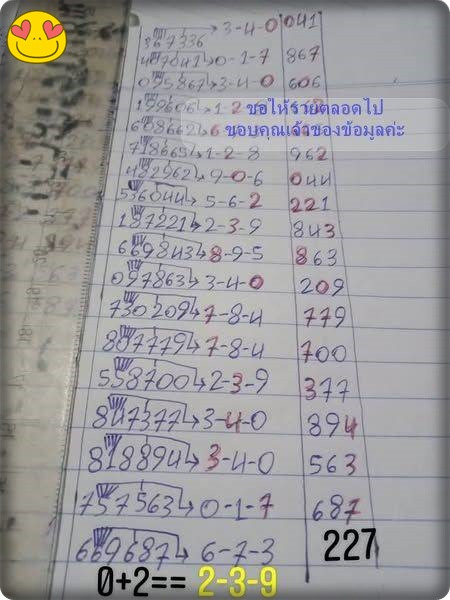 367336→3-4-0 041
407041→0-1-7 867
095867→3-4-0 606
199606→1-2
ขอให้รวยตลอดไป
ขอบคุณเจ้าของข้อมูลค่ะ
608662→6
718665→1-2-8 962
482962→9-0-6 044
536044→5-6-2 221
187221→2-3-9 843
669843→8-9-5 863
097863→3-4-0 209
730209→7-8-4 779
807779→7-8-4 700
558700→2-3-9 377
847377→3-4-0 894
818894→3-4-0 563
757563→0-1-7 687
669687→6-7-3 227
0+2== 2-3-9